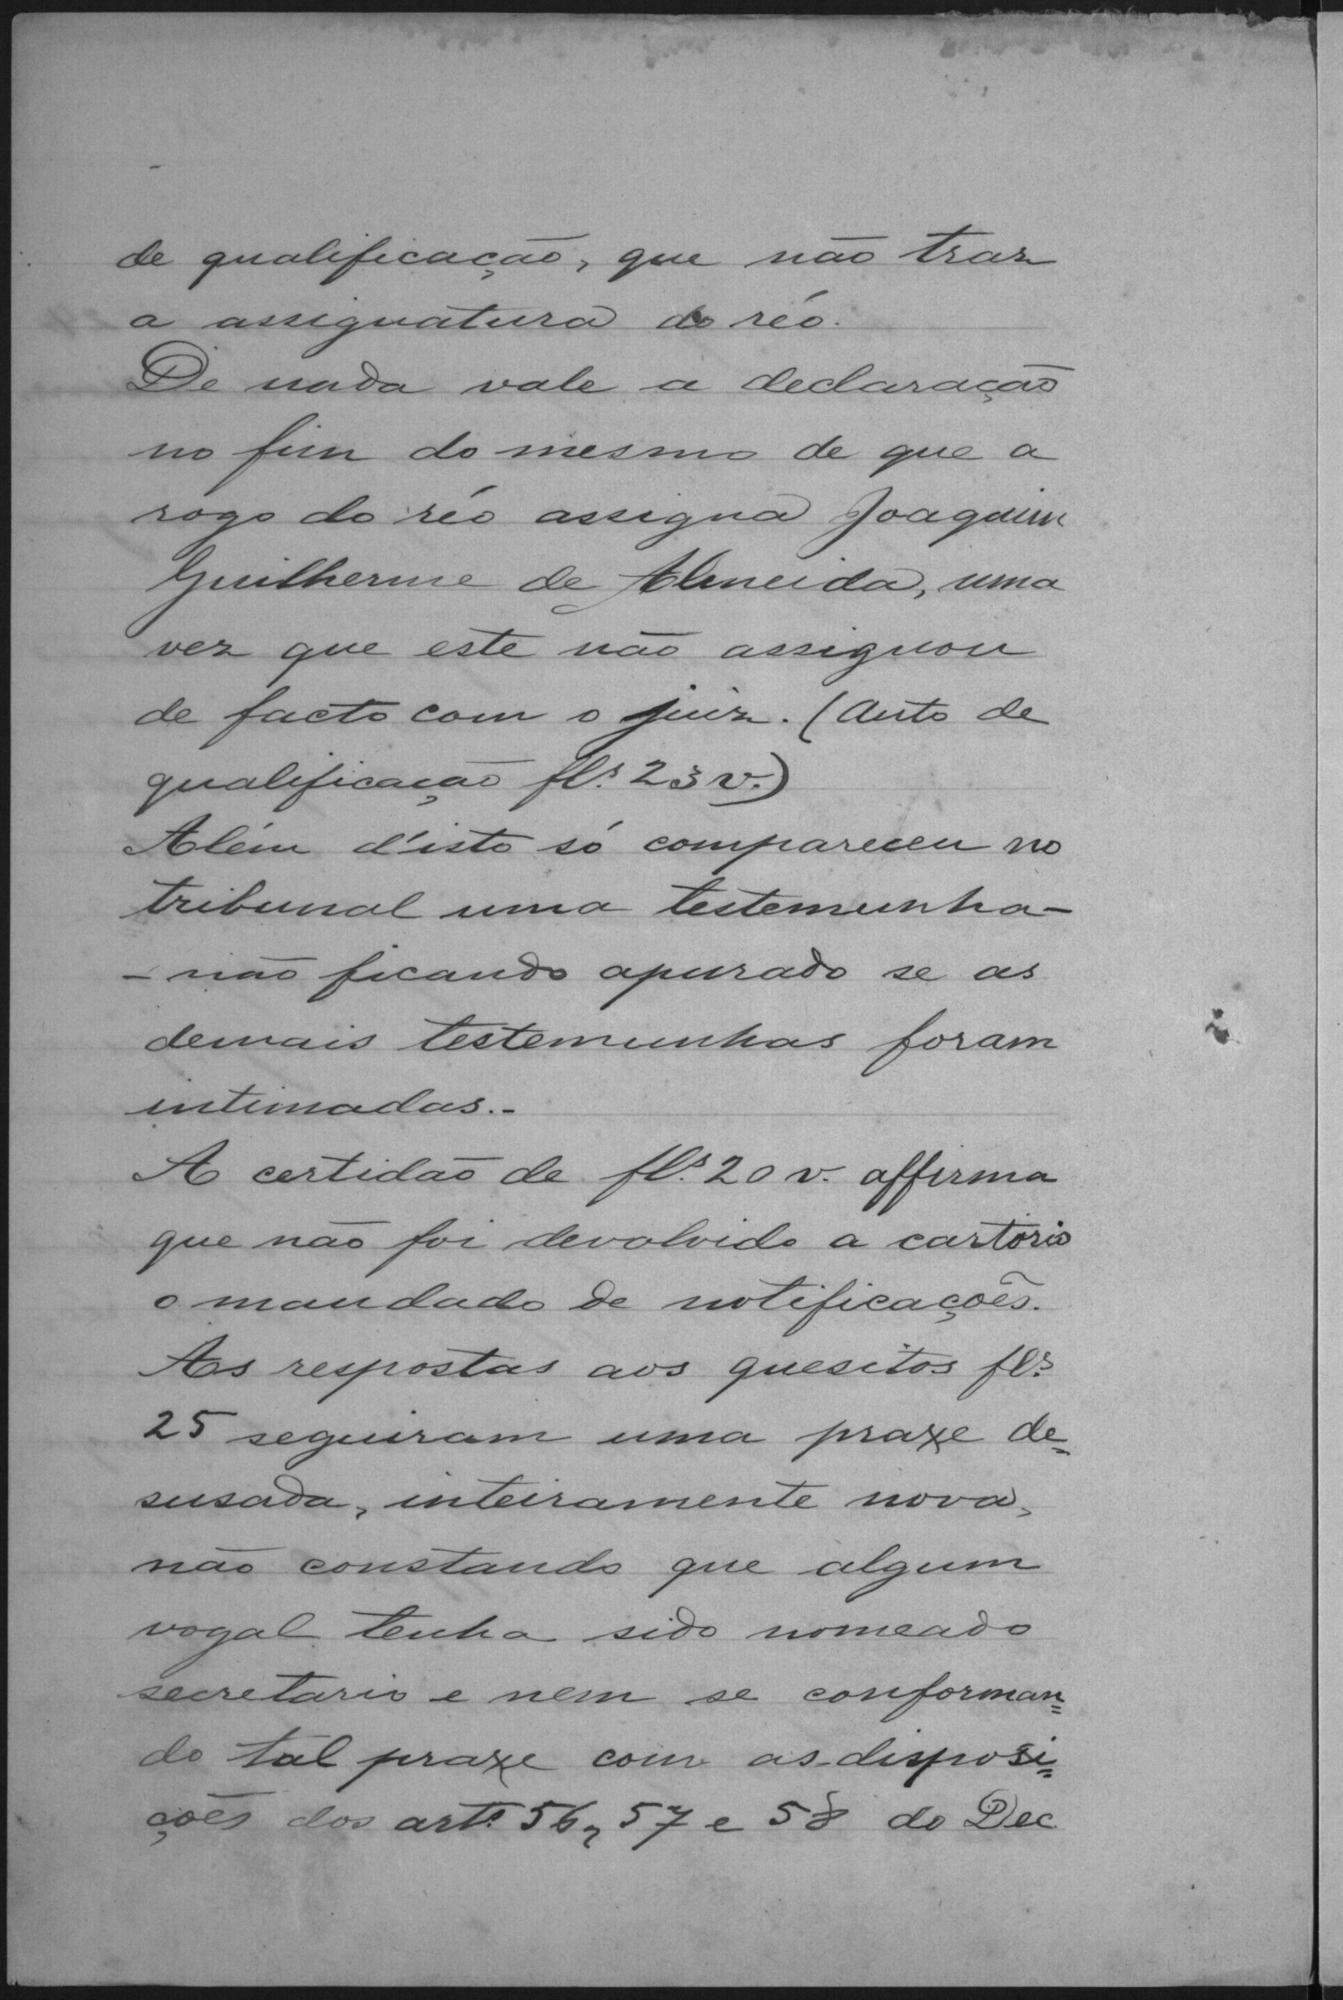 de qualificação, que não traz
a assignatura do réo.
De nada vale a declaração
no fim do mesmo de que a
rogo do réo assigna Joaquim
Guilherme de Almeida, uma
vez que este não assignou
de facto com o juiz. (Auto de
qualificação fls. 23 v.)
Além d'isto só compareceu no
tribunal uma testemunha-
- não ficando apurado se as
demais testemunhas foram
intimadas.-
A certidão de fls. 20 v. affirma
que não foi devolvido a cartorio
o mandado de notificações.
As respostas aos quesitos fls.
25 seguiram uma praxe de=
susada, inteiramente nova,
não constando que algum
vogal tenha sido nomeado
secretario e nem se conforman=
do tal praxe com as disposi=
ções dos arts. 56, 57 e 58 do Dec